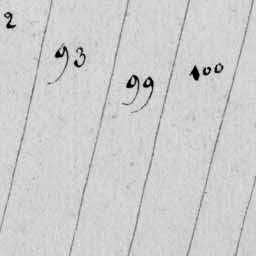 2
93
99
100